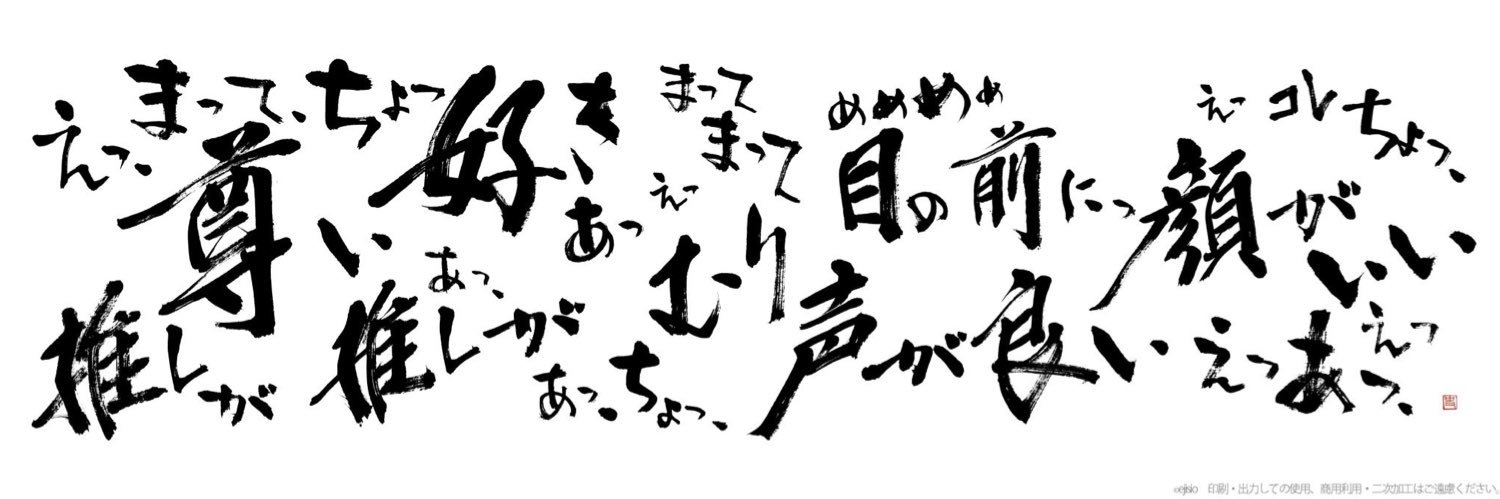 えっ、まって、ちょっ
尊い
好き、
あっ
推しが
推しが
あっ、
あっ、ちょっ、
まって
まって
えっ
むり
めめめめぁ
目の前にっ
声が良い
えっ コレちょっ、
顔がいい
えっあっ、
えっ
©ejisio 印刷・出力しての使用、商用利用・二次加工はご遠慮ください。